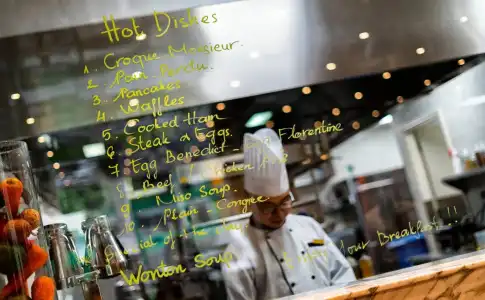 Hot Dishes
1. Croque Monsieur.
2. Pain Perdu.
3. Pancakes
4. Waffles
5. Cooked Ham
6. Steak & Eggs.
7. Egg Benedict - Florentine
8. Beef
9. Miso Soup.
10. Plain - Congee
Special of the day
Wonton Soup
your Breakfast !!